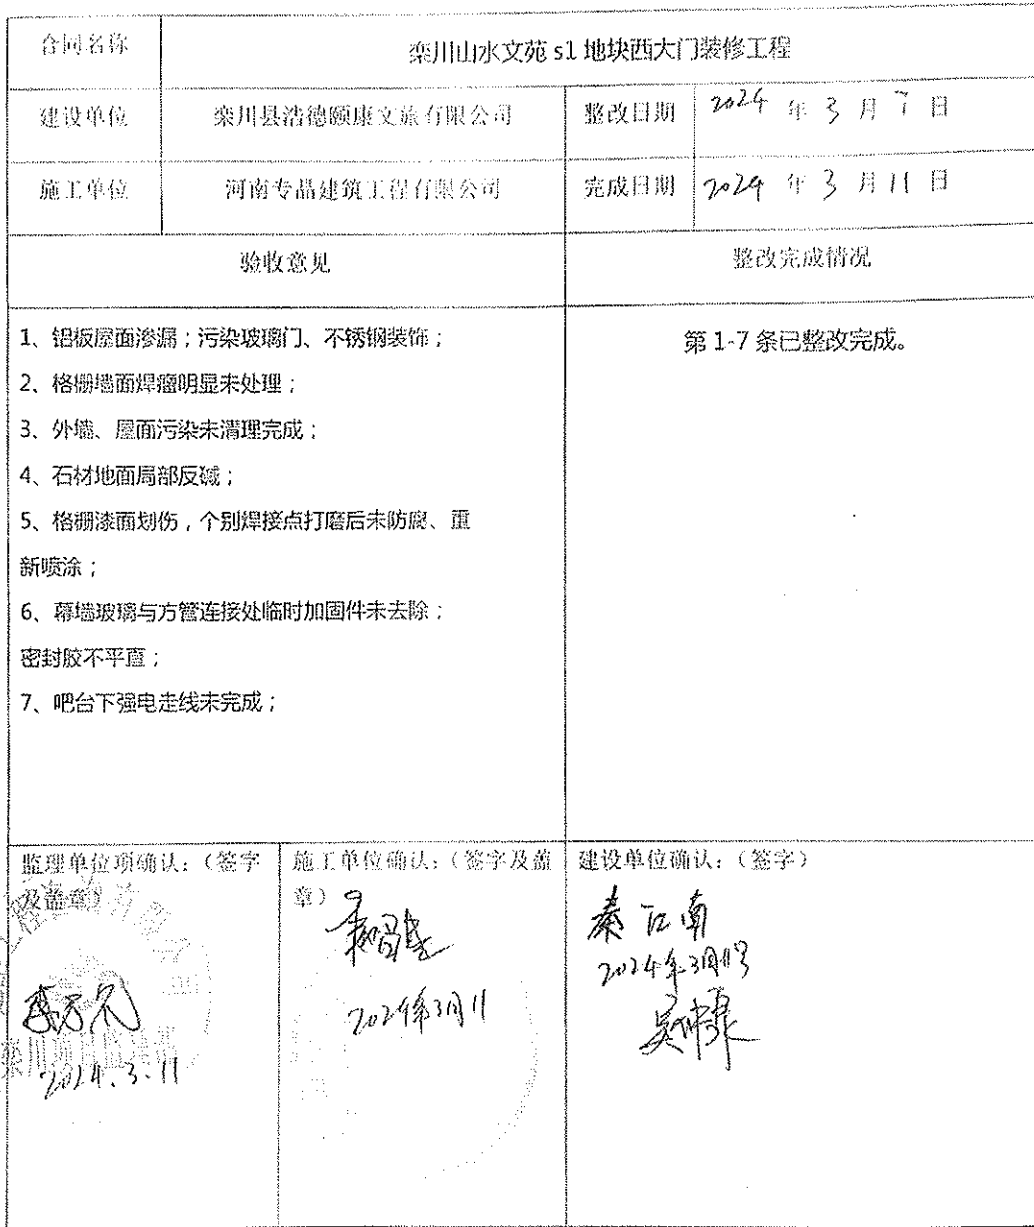 合同名称 栾川山水文苑 s1 地块西大门装修工程
建设单位 栾川县浩德颐康文旅有限公司 整改日期 2024 年 3 月 7 日
施工单位 河南专晶建筑工程有限公司 完成日期 2024 年 3 月 11 日
验收意见 整改完成情况
1、铝板屋面渗漏；污染玻璃门、不锈钢装饰；
2、格栅墙面焊瘤明显未处理；
3、外墙、屋面污染未清理完成；
4、石材地面局部反碱；
5、格栅漆面划伤，个别焊接点打磨后未防腐、重
新喷涂；
6、幕墙玻璃与方管连接处临时加固件未去除；
密封胶不平直；
7、吧台下强电走线未完成；
第 1-7 条已整改完成。
监理单位项确认：（签字
及盖章）
2024.3.11
施工单位确认：（签字及盖
章）
2024年3月11
建设单位确认：（签字）
秦江南
2024年3月11号